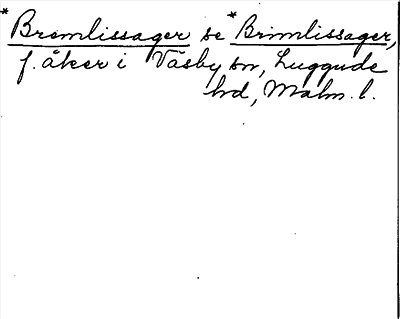 *Bromlissager se *Brimlissager,
f. åker i Väsby sn, Luggude
hd, Malm. l.